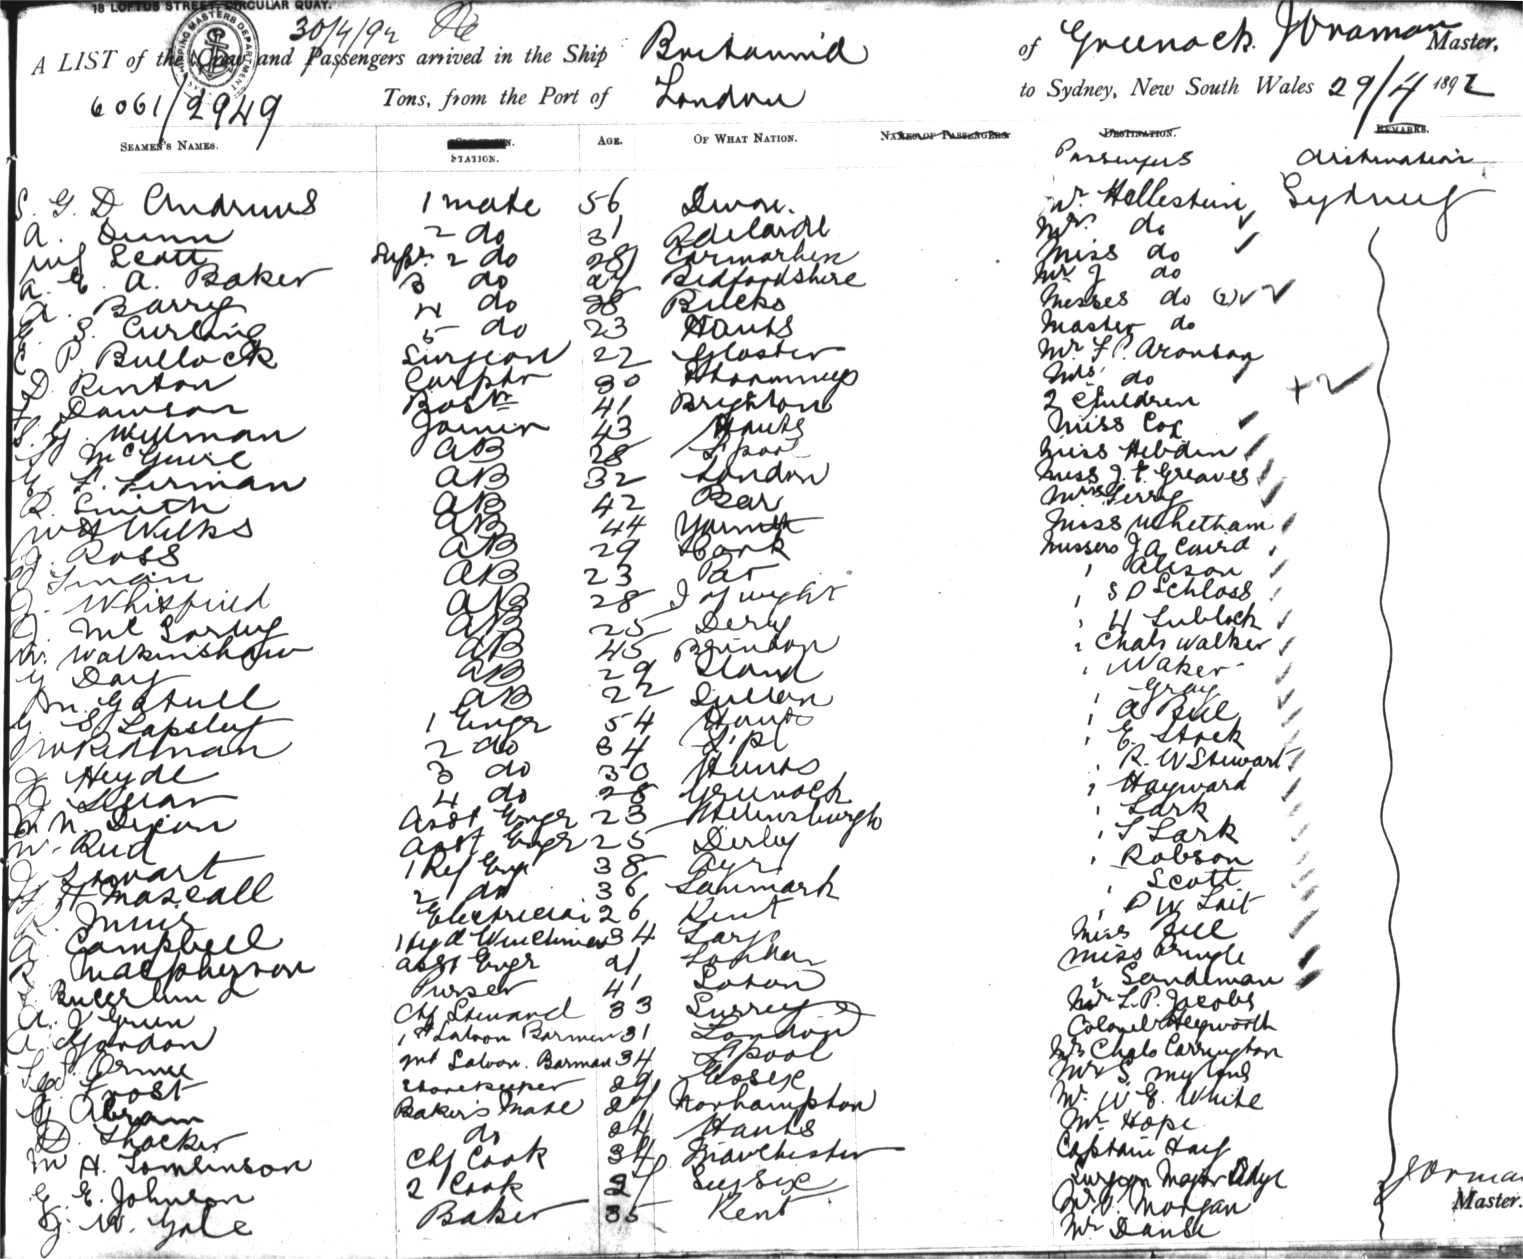 18 LOFTUS STREET, CIRCULAR QUAY.
SHIPPING MASTERS DEPARTMENT
30/4/92
A LIST of the Crew and Passengers arrived in the Ship Britannia of Greenock. Master,
6061/2949 Tons, from the Port of London to Sydney, New South Wales 29/4 1892
SEAMEN'S NAMES. STATION. AGE. OF WHAT NATION. NAMES OF PASSENGERS DESTINATION. REMARKS.
Passengers destination
S. G. D. Andrews 1 mate 56 Devon. Mr. Hallestein Sydney
A. Dunn 2 do 31 Adelaide Mrs. do
Scott Supr. 2 do 28 Carmarthen Miss do
A. E. A. Baker 3 do 27 Bedfordshire Mr J do
A. Barry 4 do 28 Bucks Messes do (2)
E. S. Curling 5 do 23 Hants Master do
P. Bullock Surgeon 22 Gloster Mr F. P. Aronson
D. Renton Carptr 30 Mrs. do
Dawson Bosn 41 Brighton 2 Children
S. G. Wellman Joiner 43 Hants Miss Cox
McGuire AB 28 L'pool Miss Hebden
G. F. Firman AB 32 London Miss J. E. Greaves
R. Smith AB 42 Bear Mrs Terry
W H Wilks AB 44 Yarmth Miss Whetham
J. Ross AB 29 Cork Messers J A Caird
AB 23 Alison
J. AB 28 I of wight S D Schloss
J. AB 25 Derry H Lublock
W. Walkinshaw AB 45 Chals Walker
G Day AB 29 Waker
AB 22 Gray
G. E. Lapsley 1 Engr 54 Hants A Bell
W Redman 2 do 34 L'pl E. Stock
J Heyde 3 do 30 Hants R. W Stewart
4 do 28 Greenock Hayward
N. Dixon Asst Engr 23 Helensburgh Lark
W. Reid Asst Engr 25 Derby T Lark
J Stewart 1 Ref Engr 38 Ayr Robson
H Mascall 2 do 36 Lanmark Scott
R. Innes Electrician 26 Kent P W Tait
A. Campbell 34 Largs Miss Bell
R. Macpherson Asst Engr 21 London Miss Pringle
Purser 41 Sandeman
A. J Green Chf Steward 33 Surrey Mr L. P. Jacobs
A. Gordon 1st Saloon Barman 31 London Colonel Heyworth
Orme 2nd Saloon. Barman 34 L'pool Mr Chals Carrington
Frost Storekeeper 29 Essex Mr S. Mylens
G. Abram Baker's Mate 27 Norhampton Mr. W. E. White
D. Thacker do 24 Hants Mr. Hope
M H. Tomlinson Chf Cook 34 Manchester Captain Hay
G. E. Johnson 2 Cook 27 Sussex Surgeon Major Adye
J. W. Gale Baker 35 Kent Mr. Morgan
Mr Daube
Master.